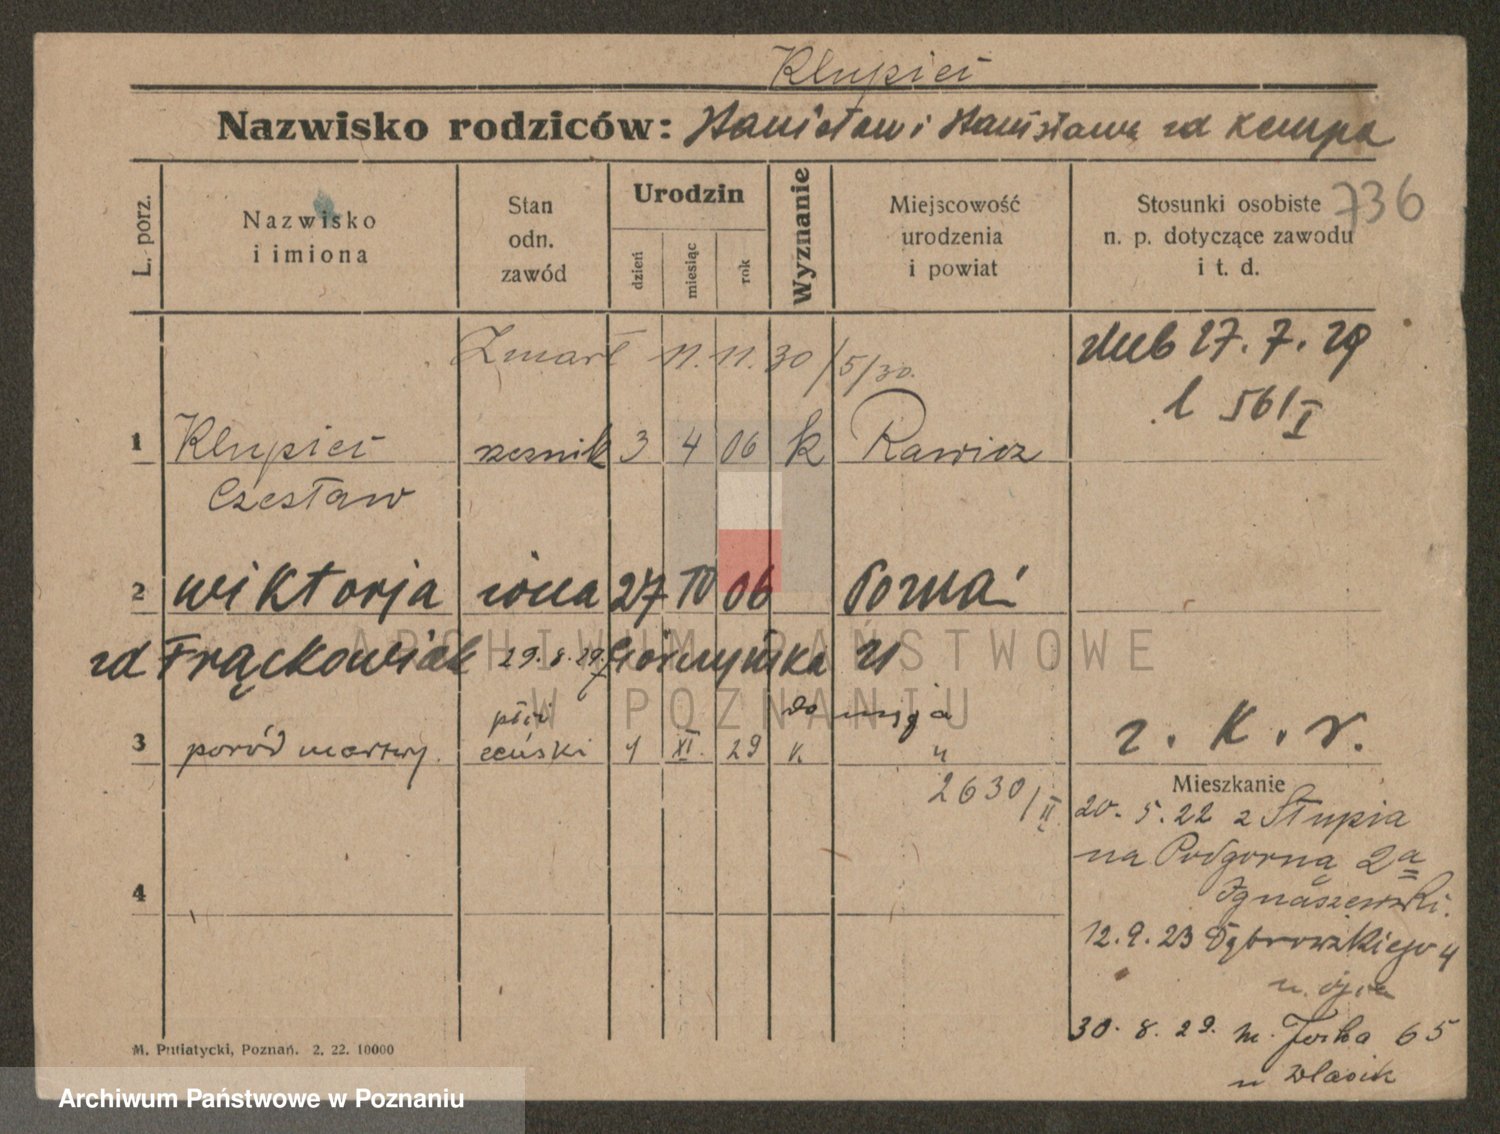 Klupieć
Nazwisko rodziców: Stanisław i Stanisława zd Kempa
L. porz.
Nazwisko i imiona
Stan odn. zawód
Urodzin
dzień miesiąc rok
Wyznanie
Miejscowość urodzenia i powiat
Stosunki osobiste n. p. dotyczące zawodu i t. d.
736
Zmarł 11. 11. 30 /5/30.
ślub 27. 7. 29
l 561/I
1 Klupieć rzeźnik 3 4 06 k Rawicz
Czesław
2 Wiktorja żona 27 IV 06 Pozna
zd Frąckowiak 29. 8. 29. Górczyńska 21
płci do męża
3 poród martwy. żeński 1 XI. 29 k. "
r. k. r.
2630/II
Mieszkanie
20. 5. 22 z Słupia
na Podgorną 2a
Ignaszewski.
12. 9. 23 Dąbrowskiego 4
u. ojca
30. 8. 29. m. Focha 65
u Wlasik
4
M. Putiatycki, Poznań. 2. 22. 10000
ARCHIWUM PAŃSTWOWE
W POZNANIU
Archiwum Państwowe w Poznaniu